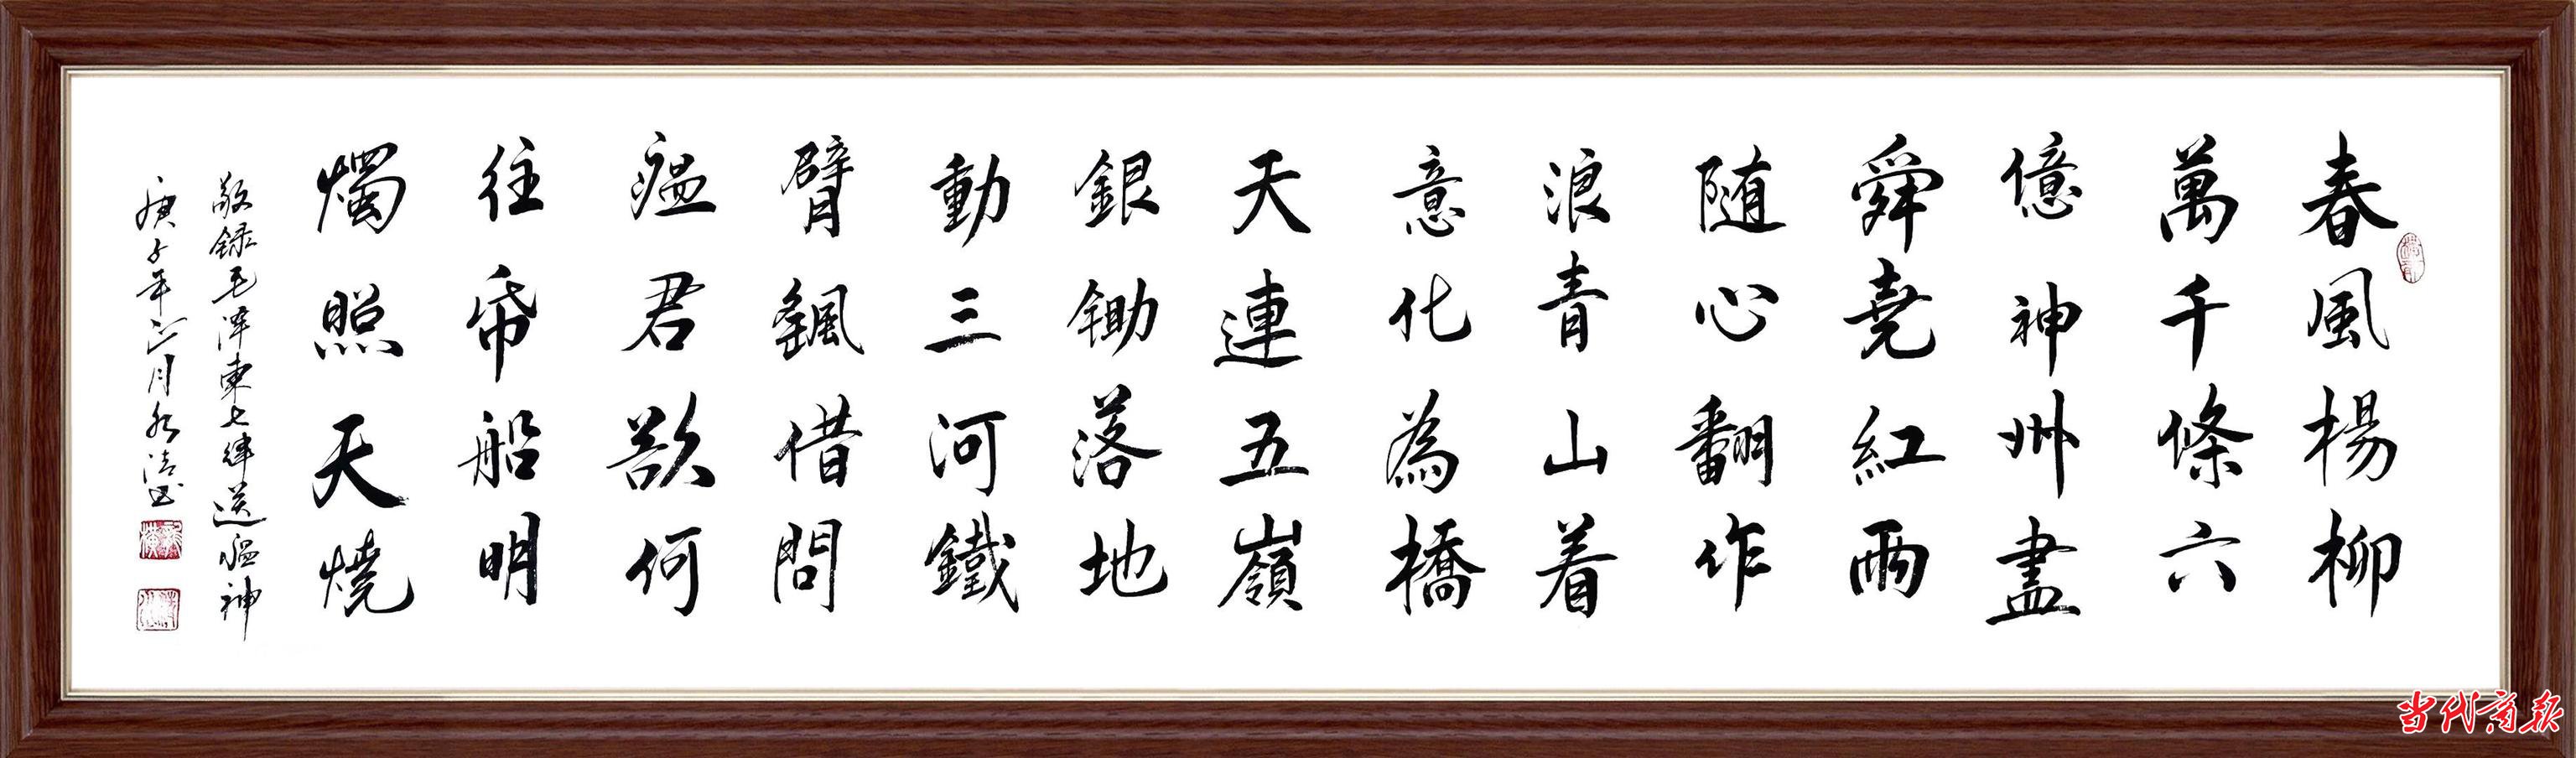 春風楊柳
萬千條六
億神州盡
舜堯紅雨
随心翻作
浪青山着
意化為橋
天連五嶺
銀锄落地
動三河鐵
臂颻借問
瘟君欲何
往帋船明
燭照天燒
敬録毛澤東七律送瘟神
庚子年正月
当代商报